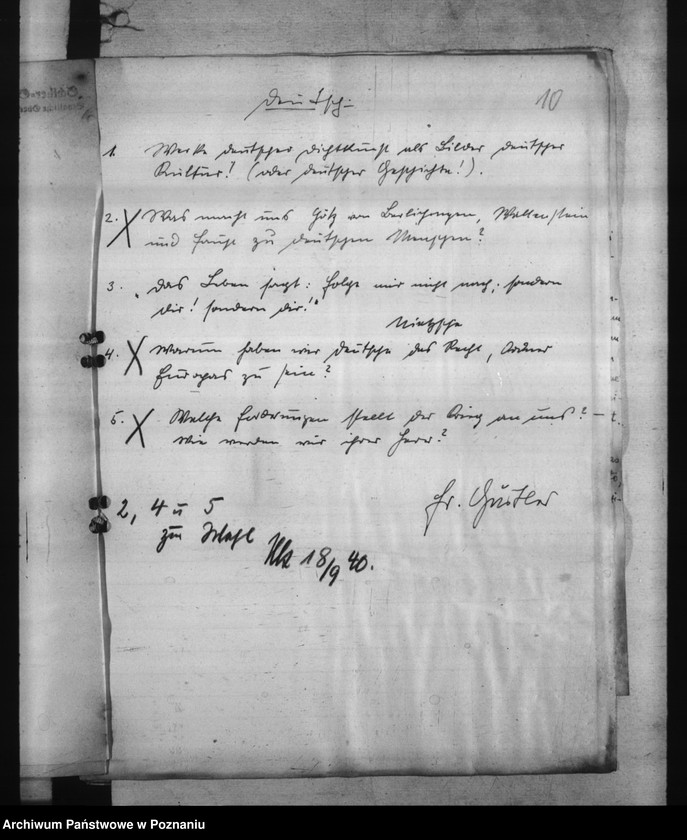 Deutsch:
10
1. Werke deutscher Dichtkunst als Bilder deutscher
Kultur! (oder deutscher Geschichte!).
2. X Was macht uns Götz von Berlichingen, Wallenstein
und Faust zu deutschen Menschen?
3. "Das Leben sagt: Folge mir nicht nach; sondern
dir! sondern dir!"
Nietzsche
4. X Warum haben wir Deutsche das Recht, Ordner
Europas zu sein?
5. X Welche Forderungen stellt der Krieg an uns? –
Wie werden wir ihrer Herr?
2, 4 u 5
zur Wahl
18/9 40.
Archiwum Państwowe w Poznaniu